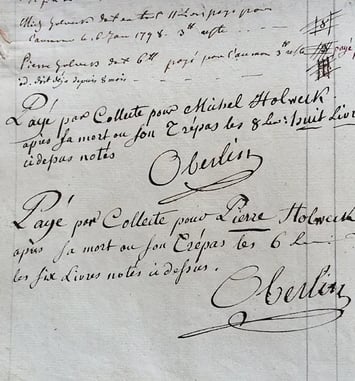 Mich Holweck doit en tout 11# on payé pour
l'aumon 6. Juin 1798 3# reste
Pierre Holweck doit 6# payé pour l'aumon 3# reste payé
id. doit déja depuis 8 mois
Payé par Collecte pour Michel Holweck
après sa mort ou son Trépas les 8 Liv: huit Livr
ci depus notés
Oberlin
Payé par Collecte pour Pierre Holweck
après sa mort ou son Trépas les 6 Liv:
les six Livres notés ci dessus.
Oberlin